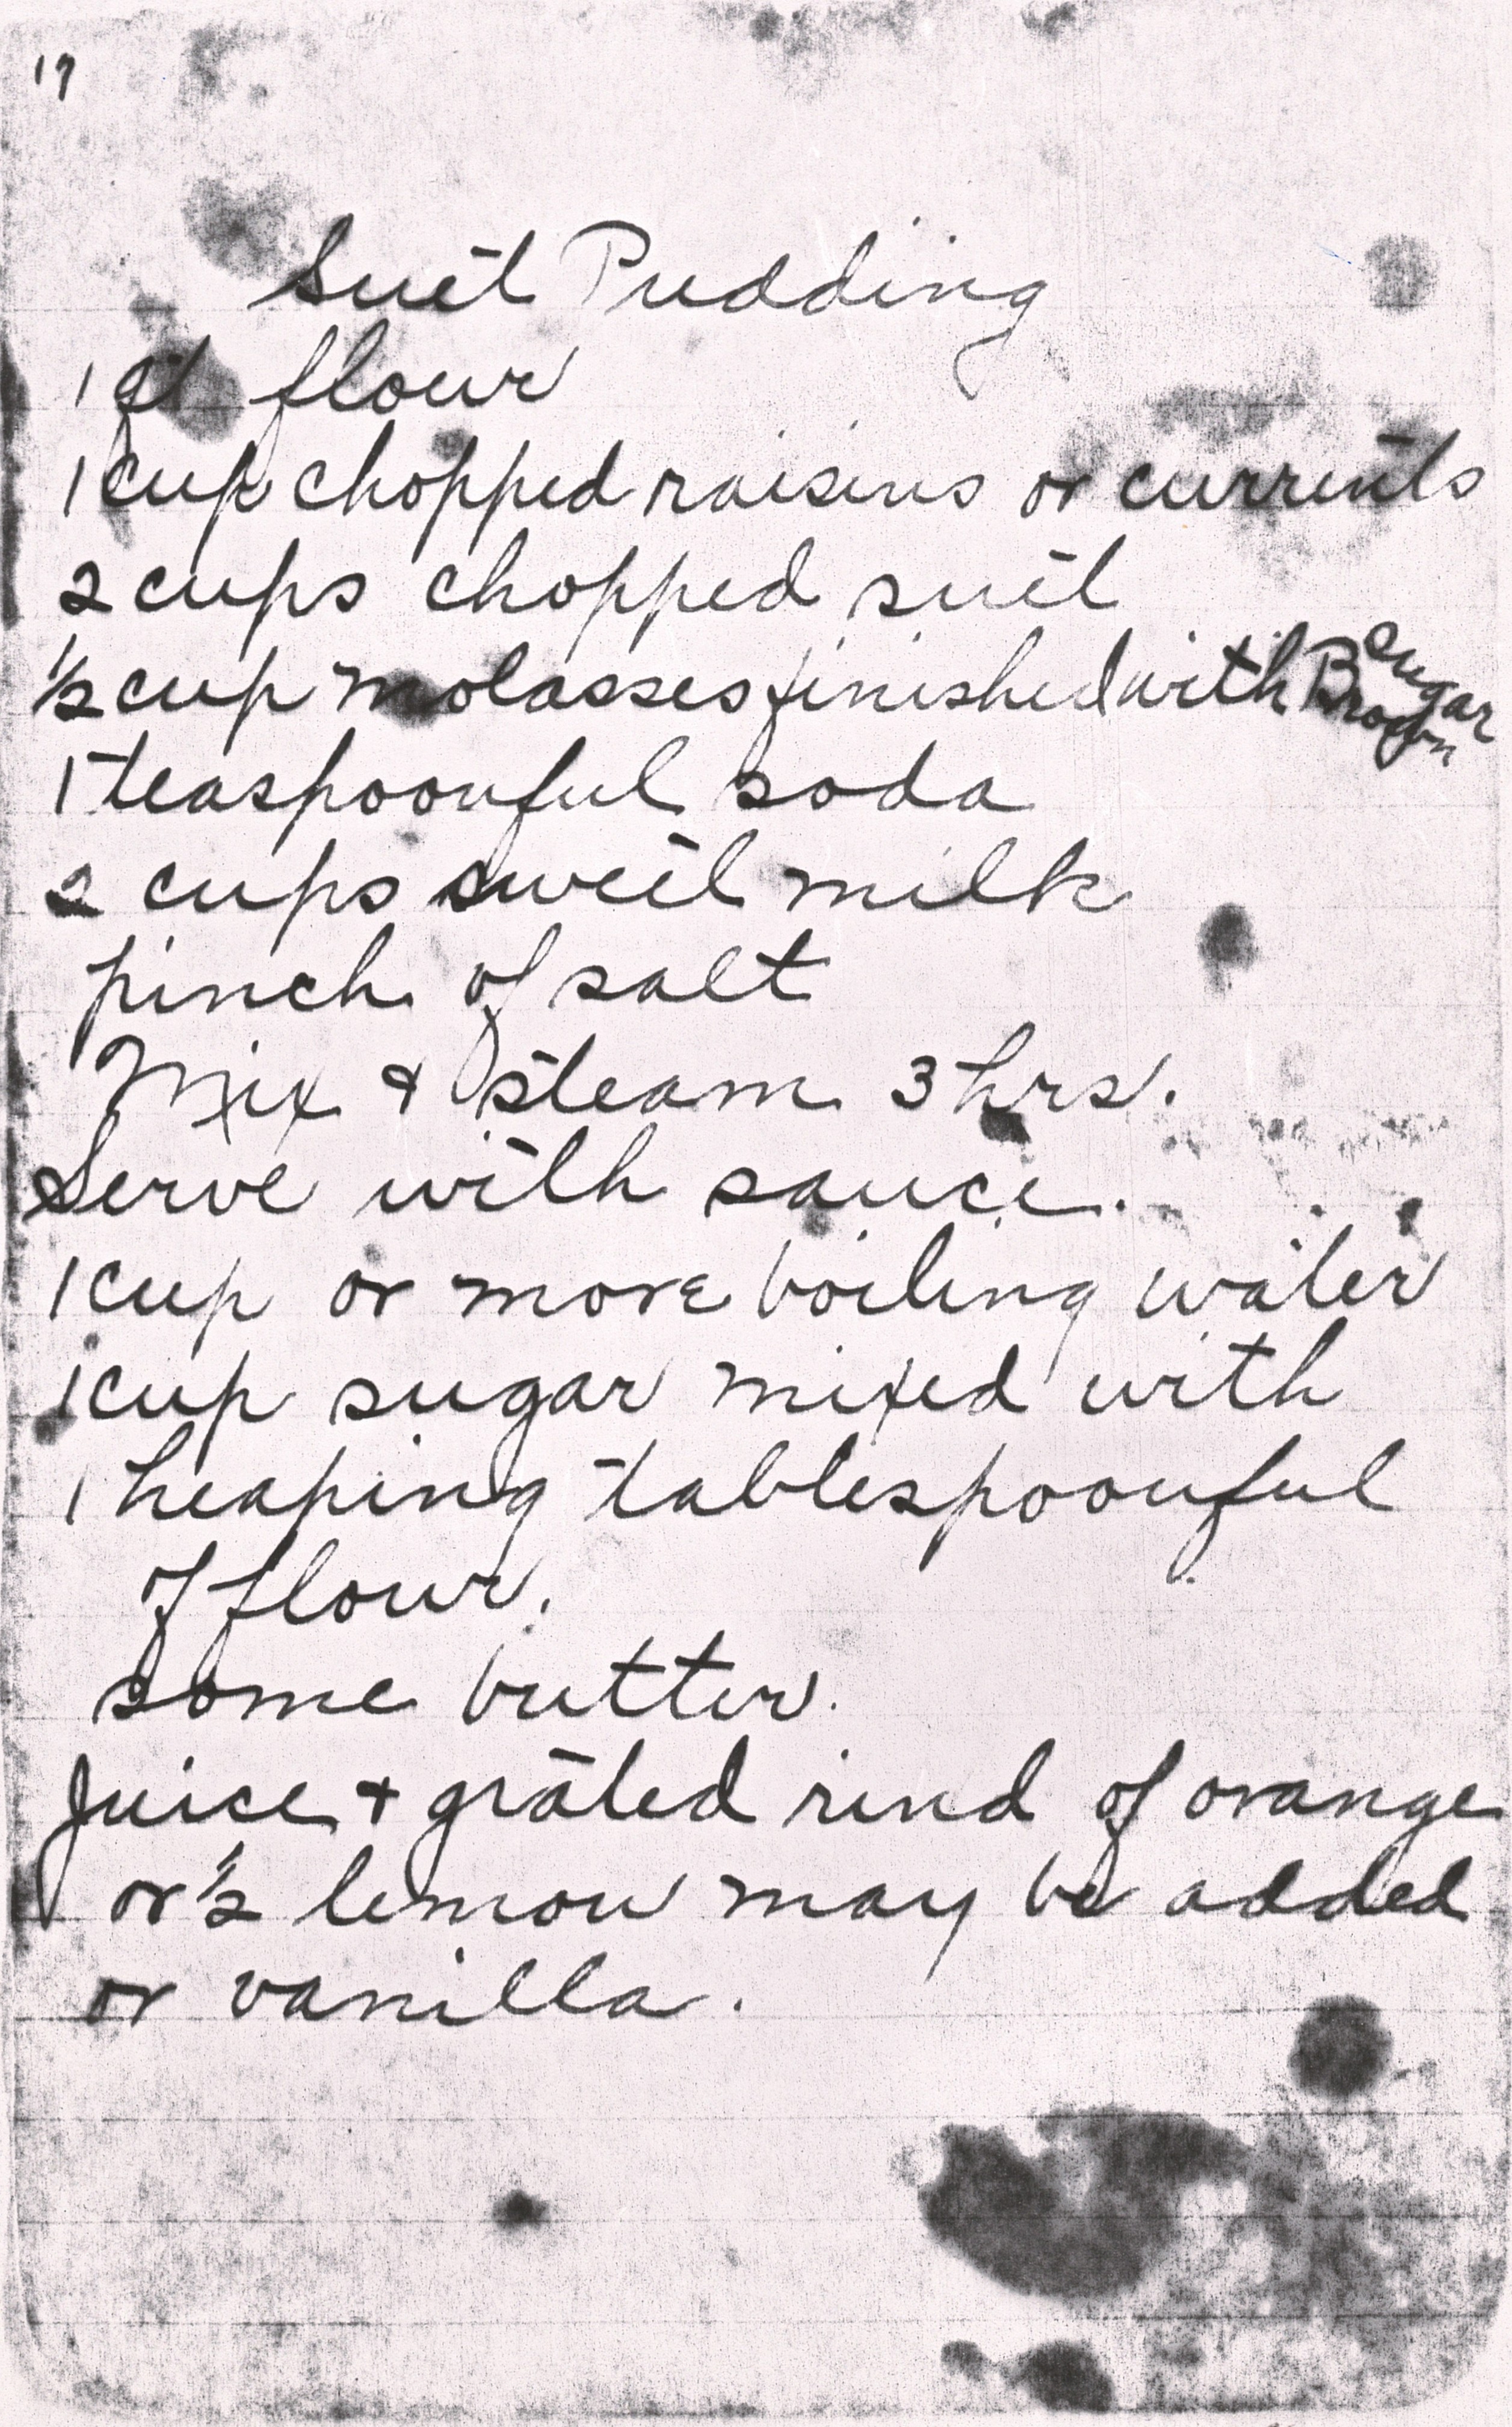 17
Suet Pudding
1 qt flour
1 cup chopped raisins or currents
2 cups chopped suet
1/2 cup molasses finished with Brown Sugar
1 teaspoonful soda
2 cups sweet milk
pinch of salt
Mix & steam 3 hrs.
Serve with sauce.
1 cup or more boiling water
1 cup sugar mixed with
1 heaping tablespoonful
of flour.
some butter.
Juice + grated rind of orange
or 1/2 lemon may be added
or vanilla.